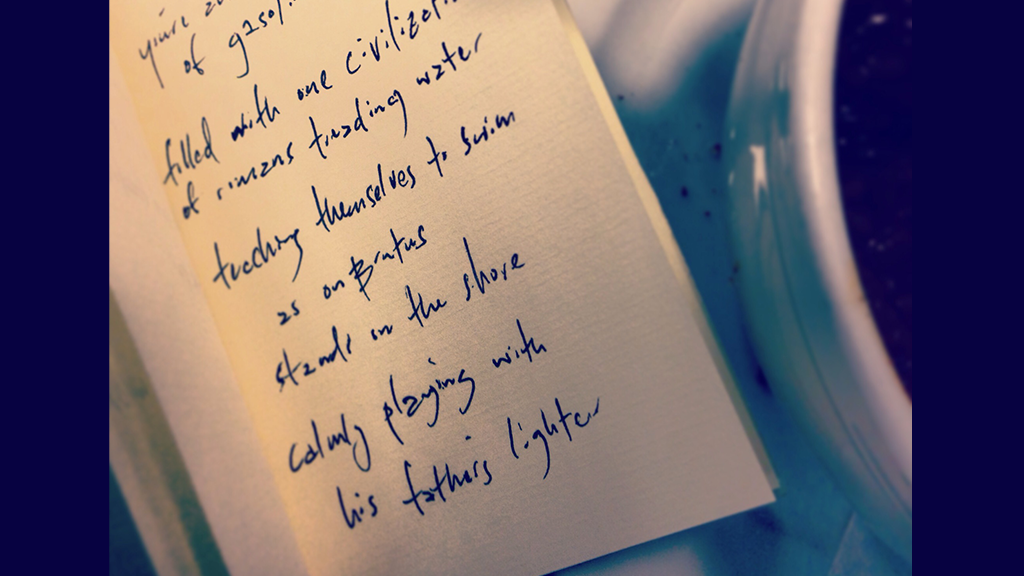 of gasoli
filled with one civilizati
of romans treading water
teaching themselves to swim
as our Brutus
stands on the shore
calmly playing with
his fathers lighter